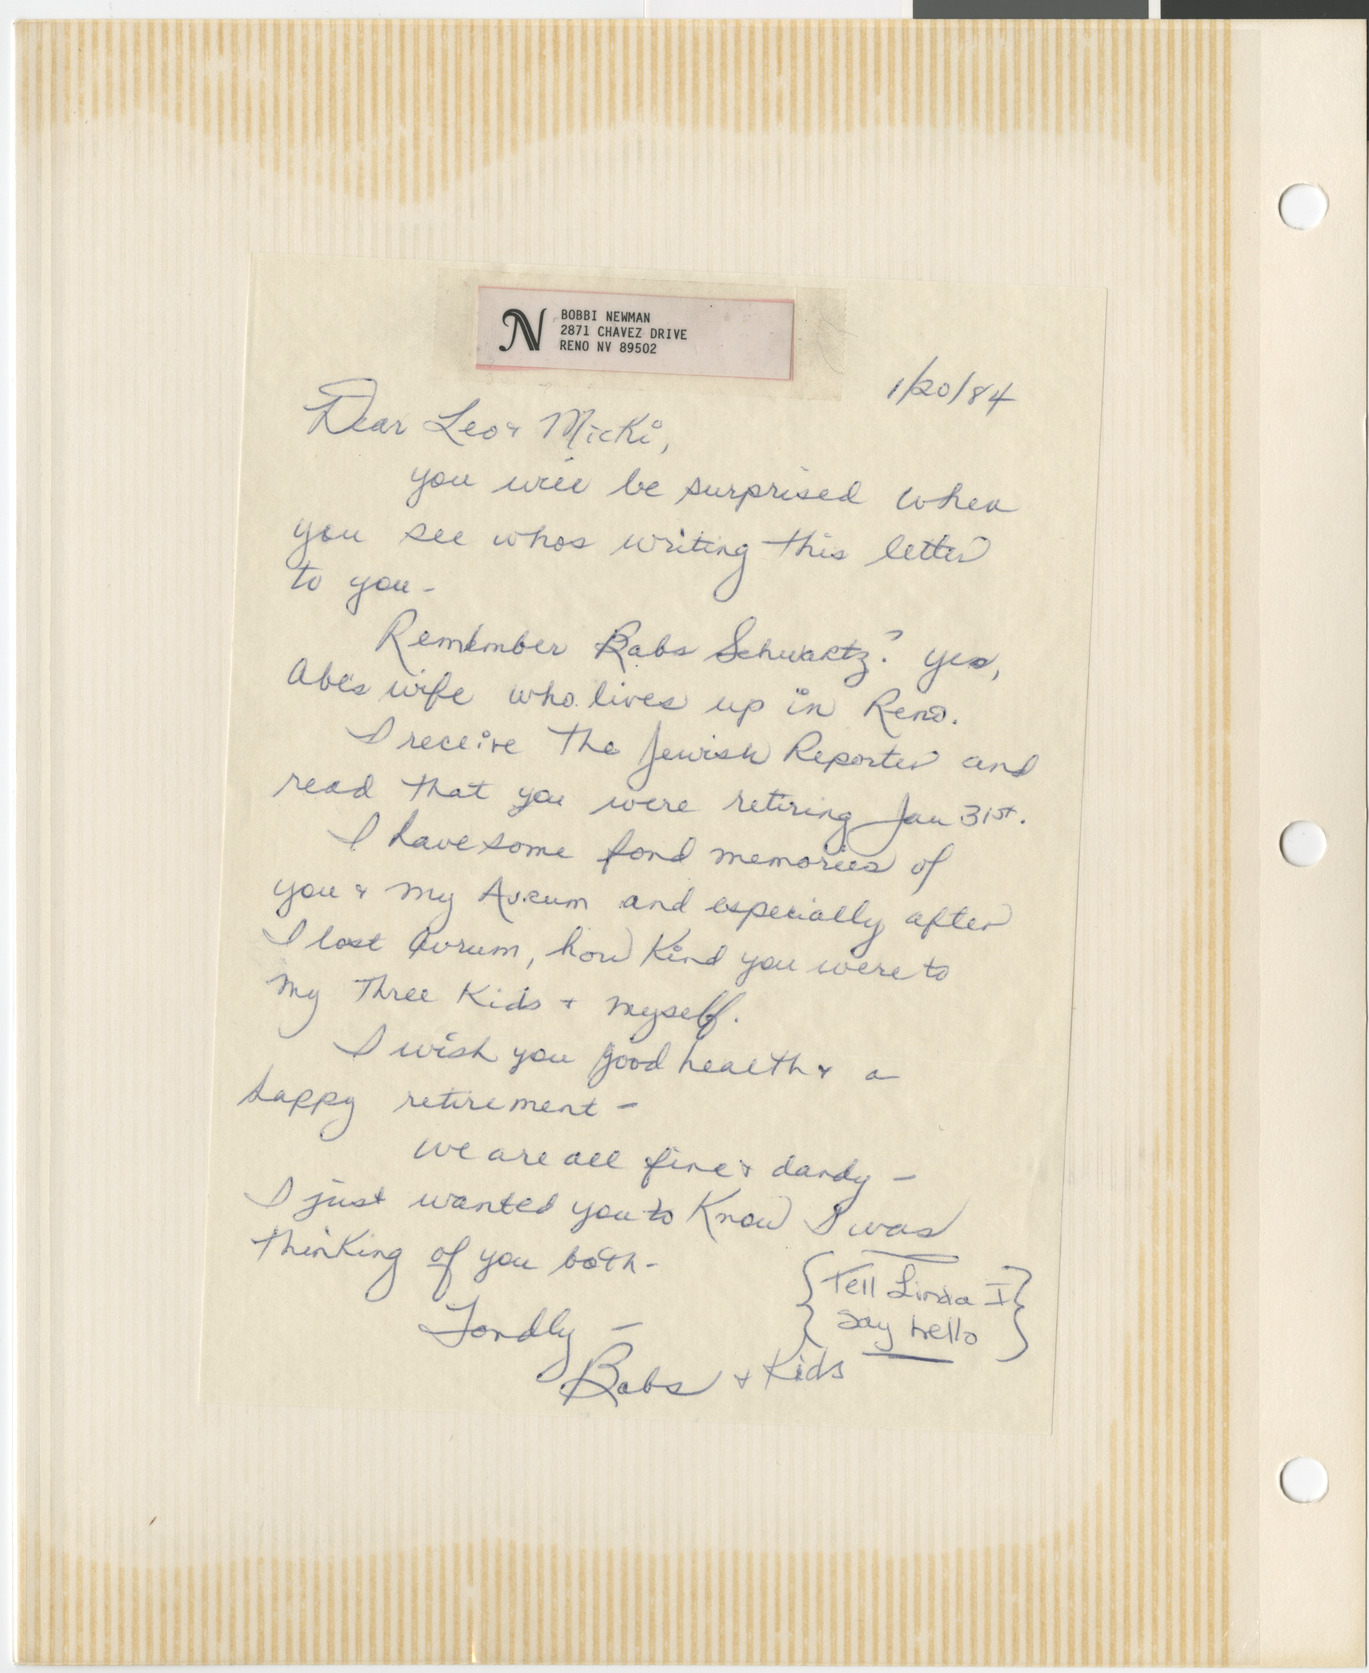 N
BOBBI NEWMAN
2871 CHAVEZ DRIVE
RENO NV 89502
1/20/84
Dear Leo & Micki,
you will be surprised when
you see whos writing this letter
to you -
Remember Babs Schwartz? yes,
Abe's wife who lives up in Reno.
I receive the Jewish Reporter and
read that you were retiring Jan 31st.
I have some fond memories of
you & my Avrum and especially after
I lost Avrum, how kind you were to
my three kids & myself.
I wish you good health & a
happy retirement -
We are all fine & dandy -
I just wanted you to know I was
thinking of you both -
{Tell Linda I
say hello}
Fondly -
Babs & Kids